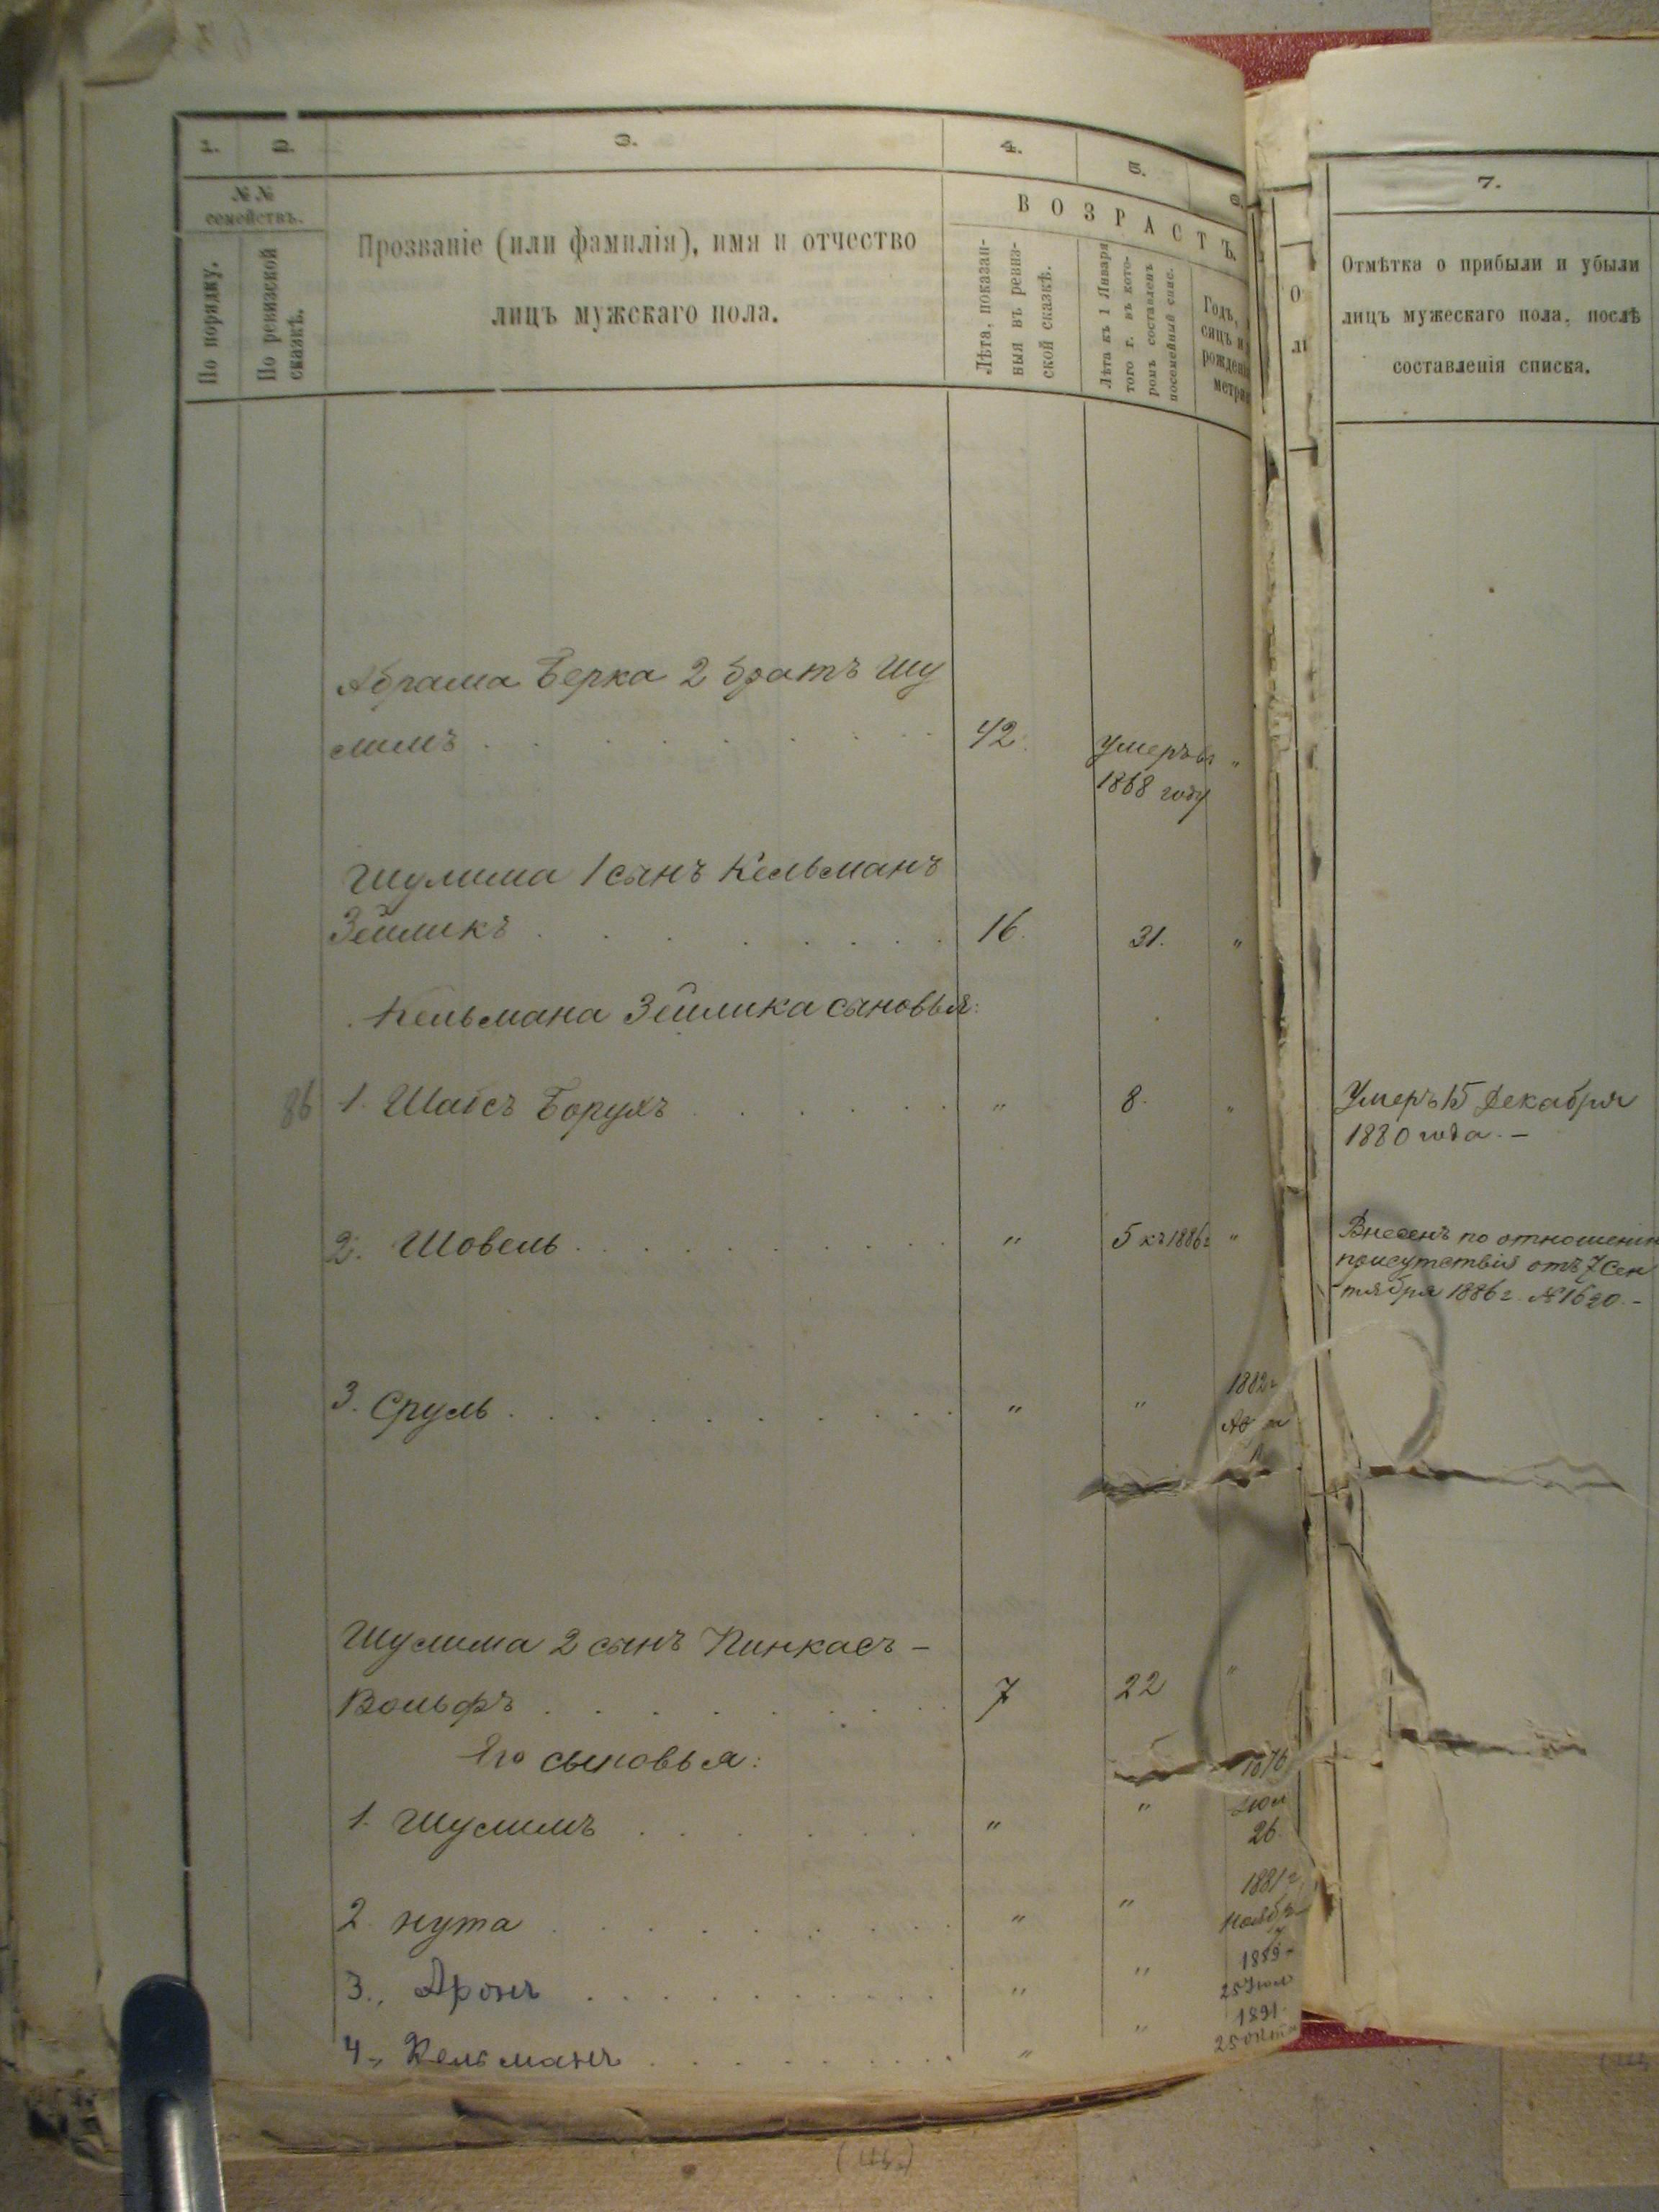 1. 2. 3. 4. 5. 6. 7.
№ №
семействъ.
По порядку.
По ревизской
сказкѣ.
Прозваніе (или фамилія), имя и отчество
лицъ мужскаго пола.
ВОЗРАСТЪ.
Лѣта, показан-
ныя въ ревиз-
ской сказкѣ.
Лѣта къ 1 Января
того г. въ кото-
ромъ составленъ
посемейный спис.
Годъ,
сяцъ и
рожденi
метри
Отмѣтка о прибыли и убыли
лицъ мужескаго пола, послѣ
составленія списка.
Абрама Берка 2 братъ Шу
лимъ 42. Умеръ въ "
1868 году
Шулима 1 сынъ Кельманъ
Зейликъ 16. 31. "
Кельмана Зейлика сыновья:
86 1. Шаесъ Борухъ " 8. " Умеръ 15 Декабря
1880 года. —
2. Шовель " 5 къ 1886г "
Внесенъ по отношенію
присутствія отъ 7 Сен
тября 1886 г. № 1620. —
3. Сруль " " 1882г
Шулима 2 сынъ Пинкасъ —
Вольфъ 7 22 "
Его сыновья:
1. Шулимъ " " 1876
Июл
26.
2 Нута " " 1881г
Ноябр
7
3., Аронъ " " 1889
25 Июл
4., Кельманъ " " 1891.
25 Окт